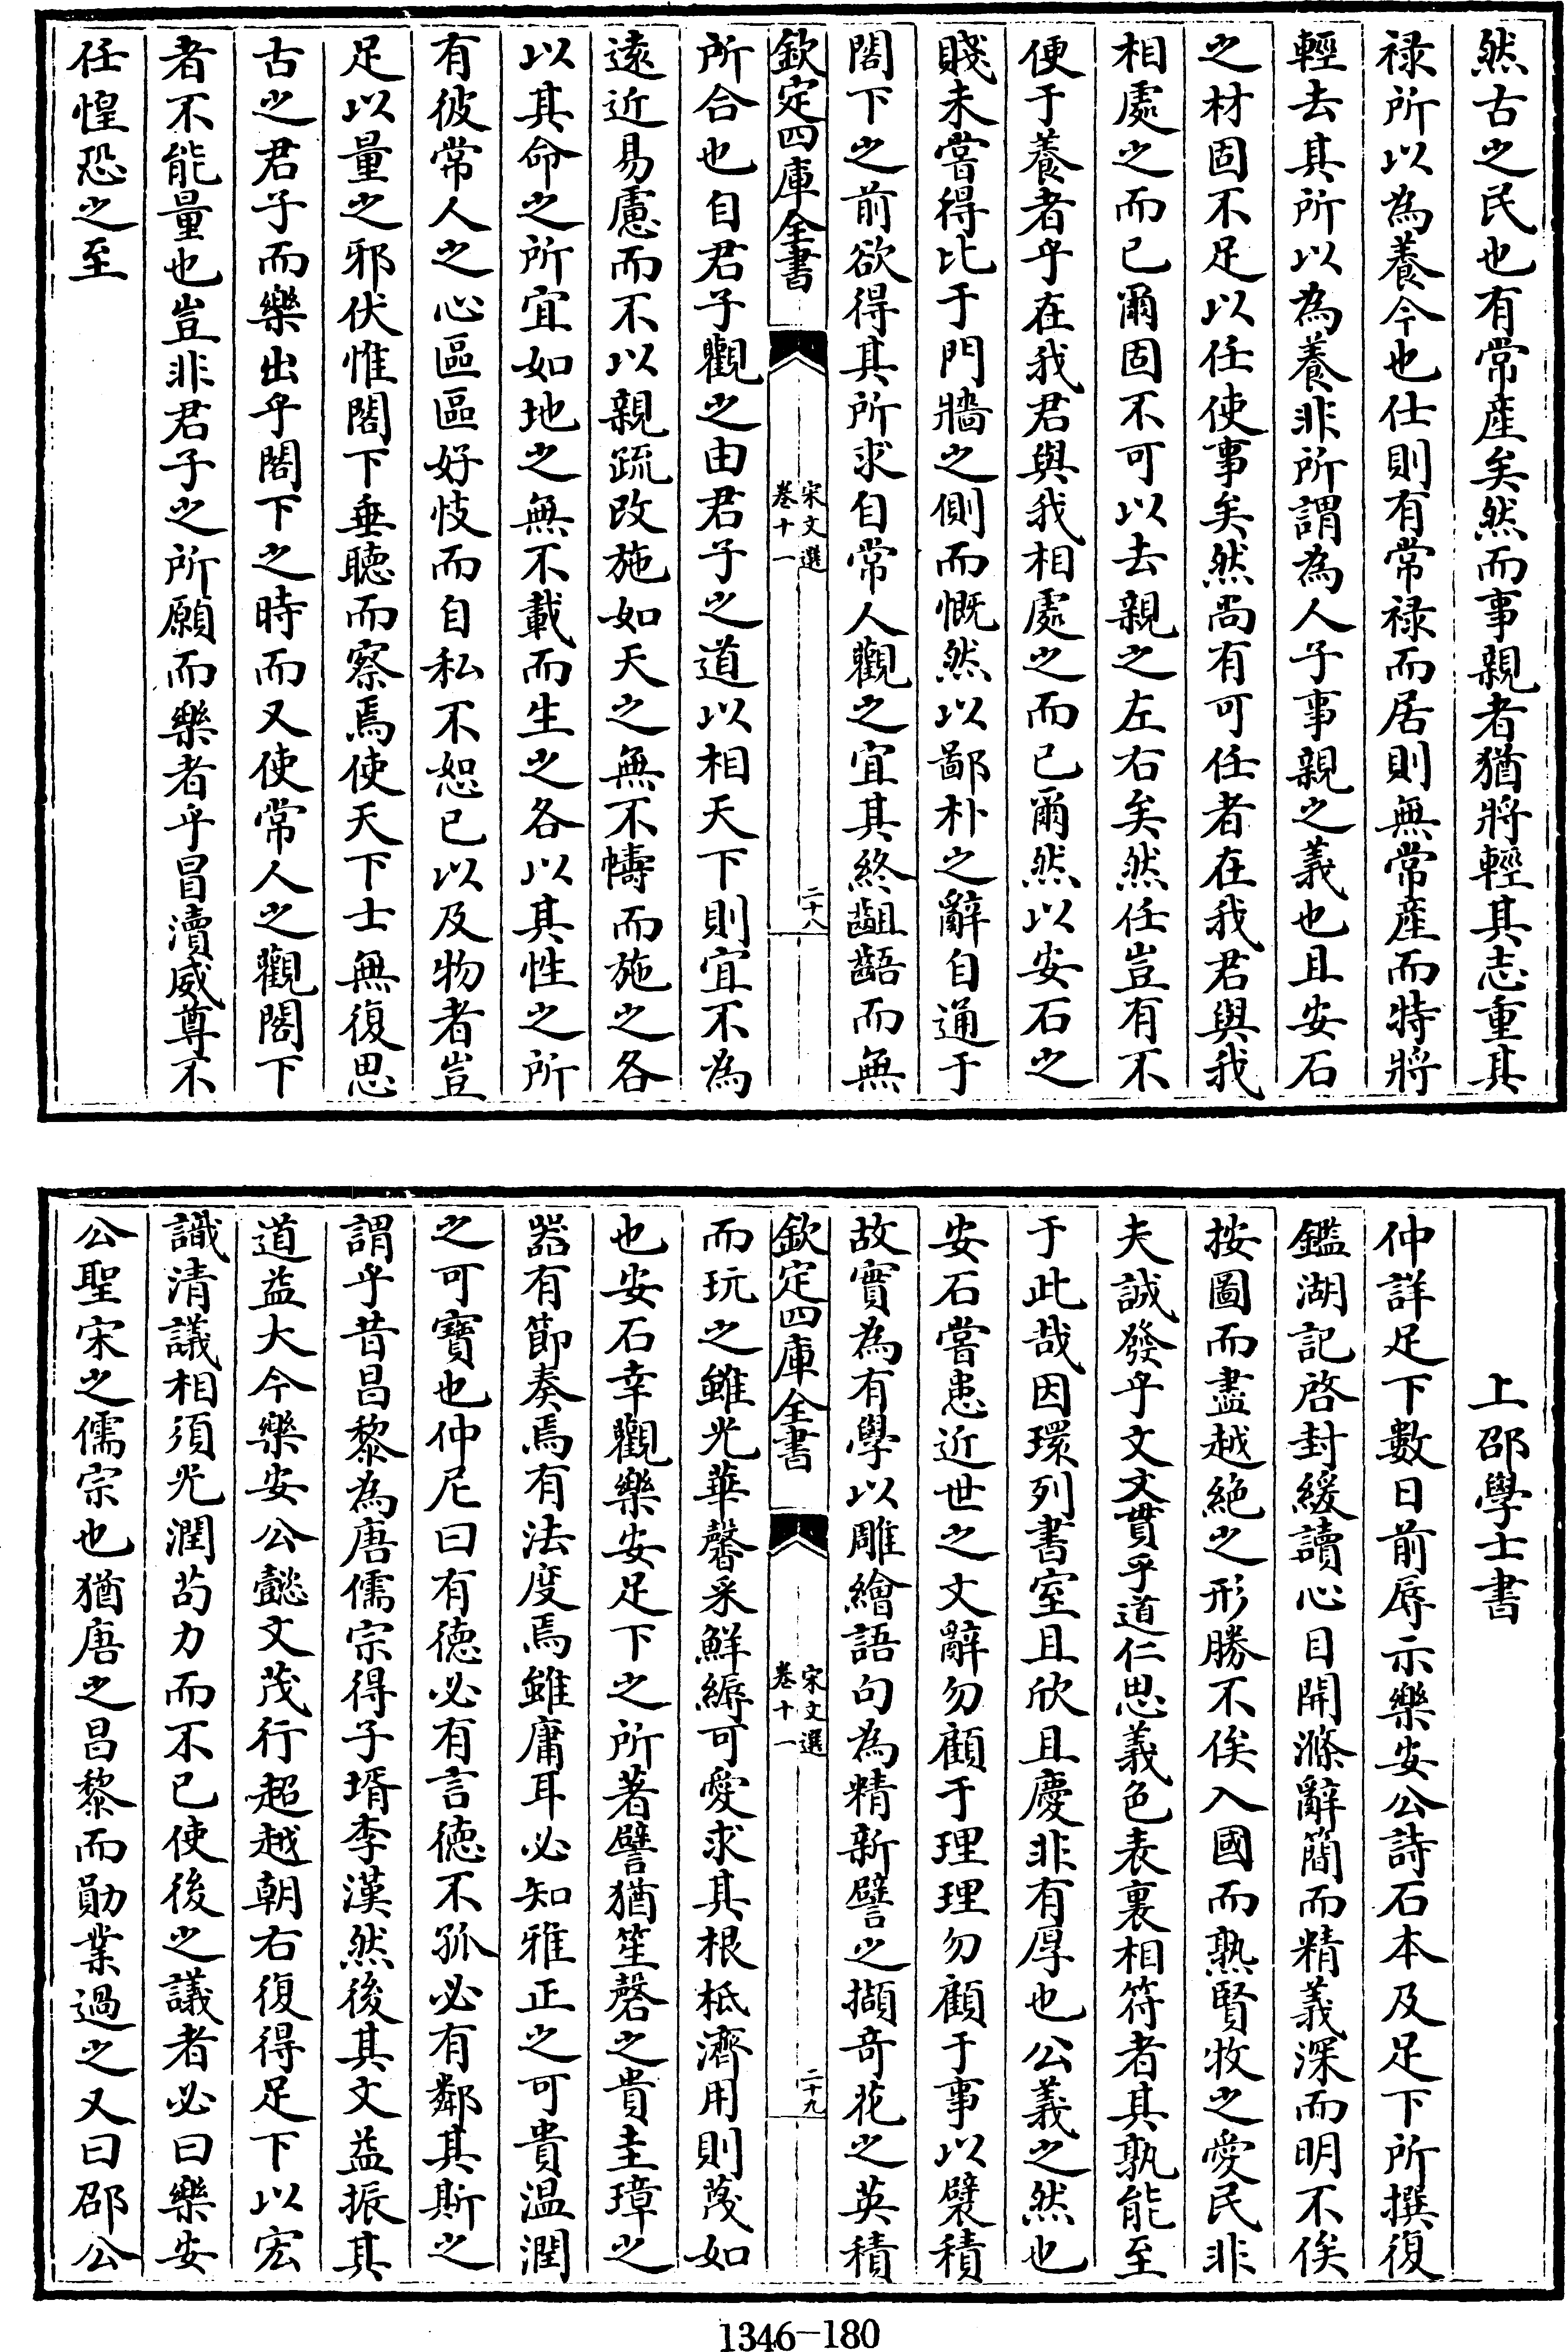 然古之民也有常産矣然而事親者猶將輕其志重其
禄所以為養今也仕則有常禄而居則無常産而特將
輕去其所以為養非所謂為人子事親之義也且安石
之材固不足以任使事矣然尚有可任者在我君與我
相處之而已爾固不可以去親之左右矣然任豈有不
便于養者乎在我君與我相處之而已爾然以安石之
賤未嘗得比于門牆之側而慨然以鄙朴之辭自通于
閤下之前欲得其所求自常人觀之宜其終齟齬而無
欽定四庫全書
宋文選
卷十一
二十八
所合也自君子觀之由君子之道以相天下則宜不為
遠近易慮而不以親疏改施如天之無不幬而施之各
以其命之所宜如地之無不載而生之各以其性之所
有彼常人之心區區好忮而自私不恕已以及物者豈
足以量之邪伏惟閤下垂聽而察焉使天下士無復思
古之君子而樂出乎閤下之時而又使常人之觀閤下
者不能量也豈非君子之所願而樂者乎冒瀆威尊不
任惶恐之至
上邵學士書
仲詳足下數日前辱示樂安公詩石本及足下所撰復
鑑湖記啓封緩讀心目開滌辭簡而精義深而明不俟
按圖而盡越絶之形勝不俟入國而熟賢牧之愛民非
夫誠發乎文文貫乎道仁思義色表裏相符者其孰能至
于此哉因環列書室且欣且慶非有厚也公義之然也
安石嘗患近世之文辭勿顧于理理勿顧于事以襞積
故實為有學以雕繪語句為精新譬之擷奇花之英積
欽定四庫全書
宋文選
卷十一
二十九
而玩之雖光華馨采鮮縟可愛求其根柢濟用則蔑如
也安石幸觀樂安足下之所著譬猶笙磬之貴圭璋之
器有節奏焉有法度焉雖庸耳必知雅正之可貴温潤
之可寶也仲尼曰有徳必有言徳不孤必有鄰其斯之
謂乎昔昌黎為唐儒宗得子壻李漢然後其文益振其
道益大今樂安公懿文茂行超越朝右復得足下以宏
識清議相須光潤苟力而不已使後之議者必曰樂安
公聖宋之儒宗也猶唐之昌黎而勛業過之又曰邵公
1346-180